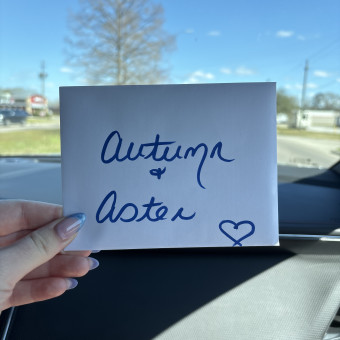 Autumn
&
Aster